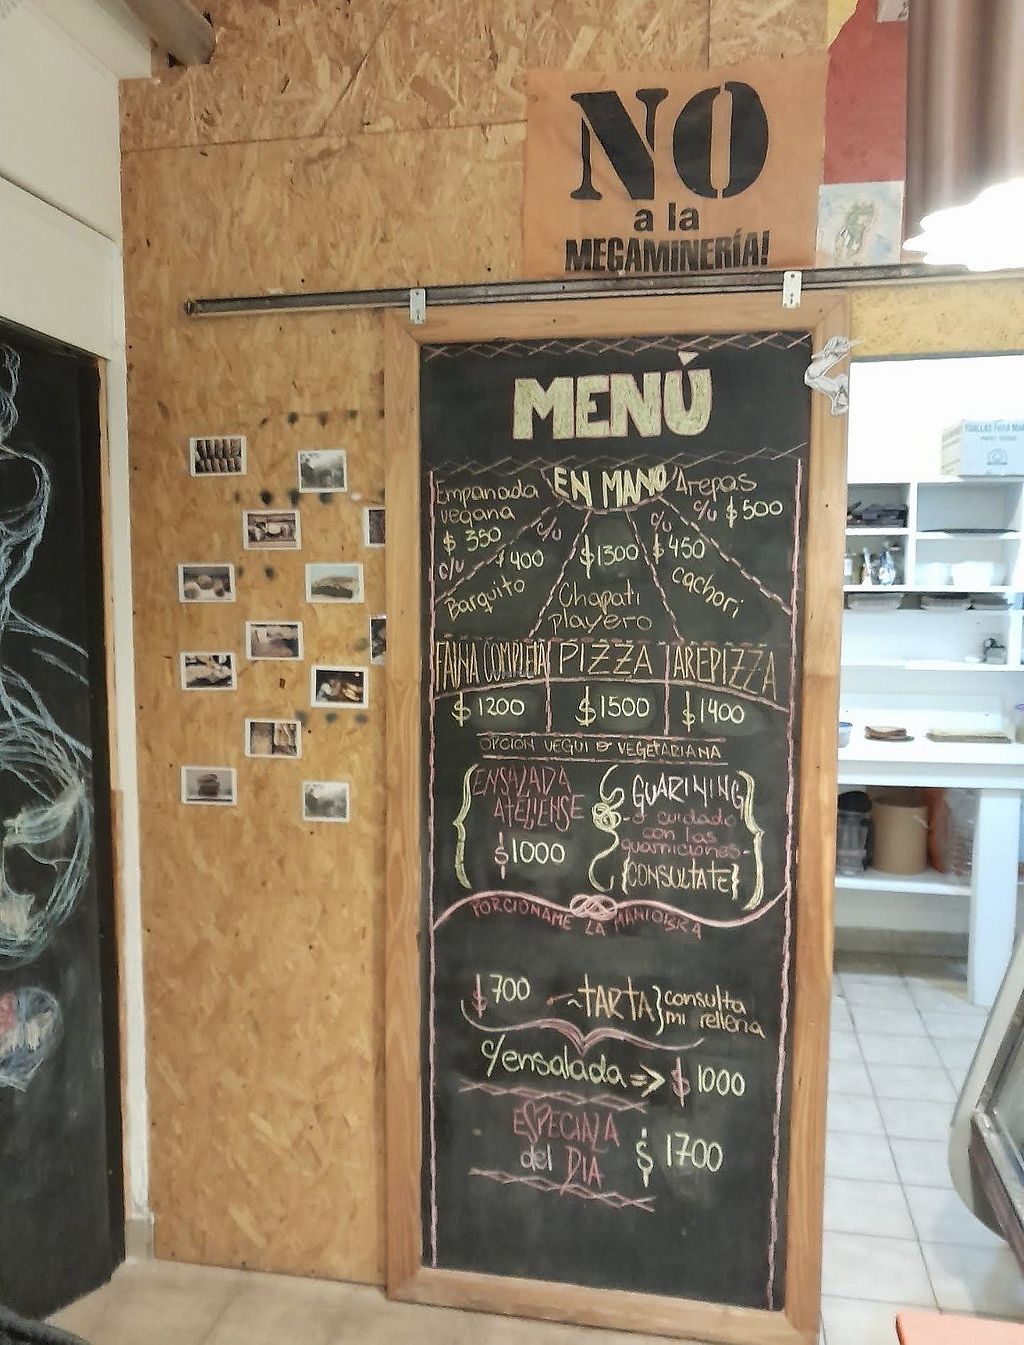 NO
a la
MEGAMINERÍA!
MENÚ
EN MANO
Empanada
vegana
$ 350
c/u
Barquito
$400
c/u
$1300
Chapati
playero
c/u
$450
cachori
Arepas
c/u $500
FAINA COMPLETA
$1200
PIZZA
$1500
AREPIZZA
$1400
OPCIÓN VEGUI o VEGETARIANA
ENSALADA
ATELIENSE
$1000
GUARINING
- cuidado
con las
guarniciones -
{CONSULTATE}
PORCIONAME LA MANIOBRA
$700
~TARTA}
consulta
mi rellena
c/ensalada => $1000
ESPECIAL
del DIA
$ 1700